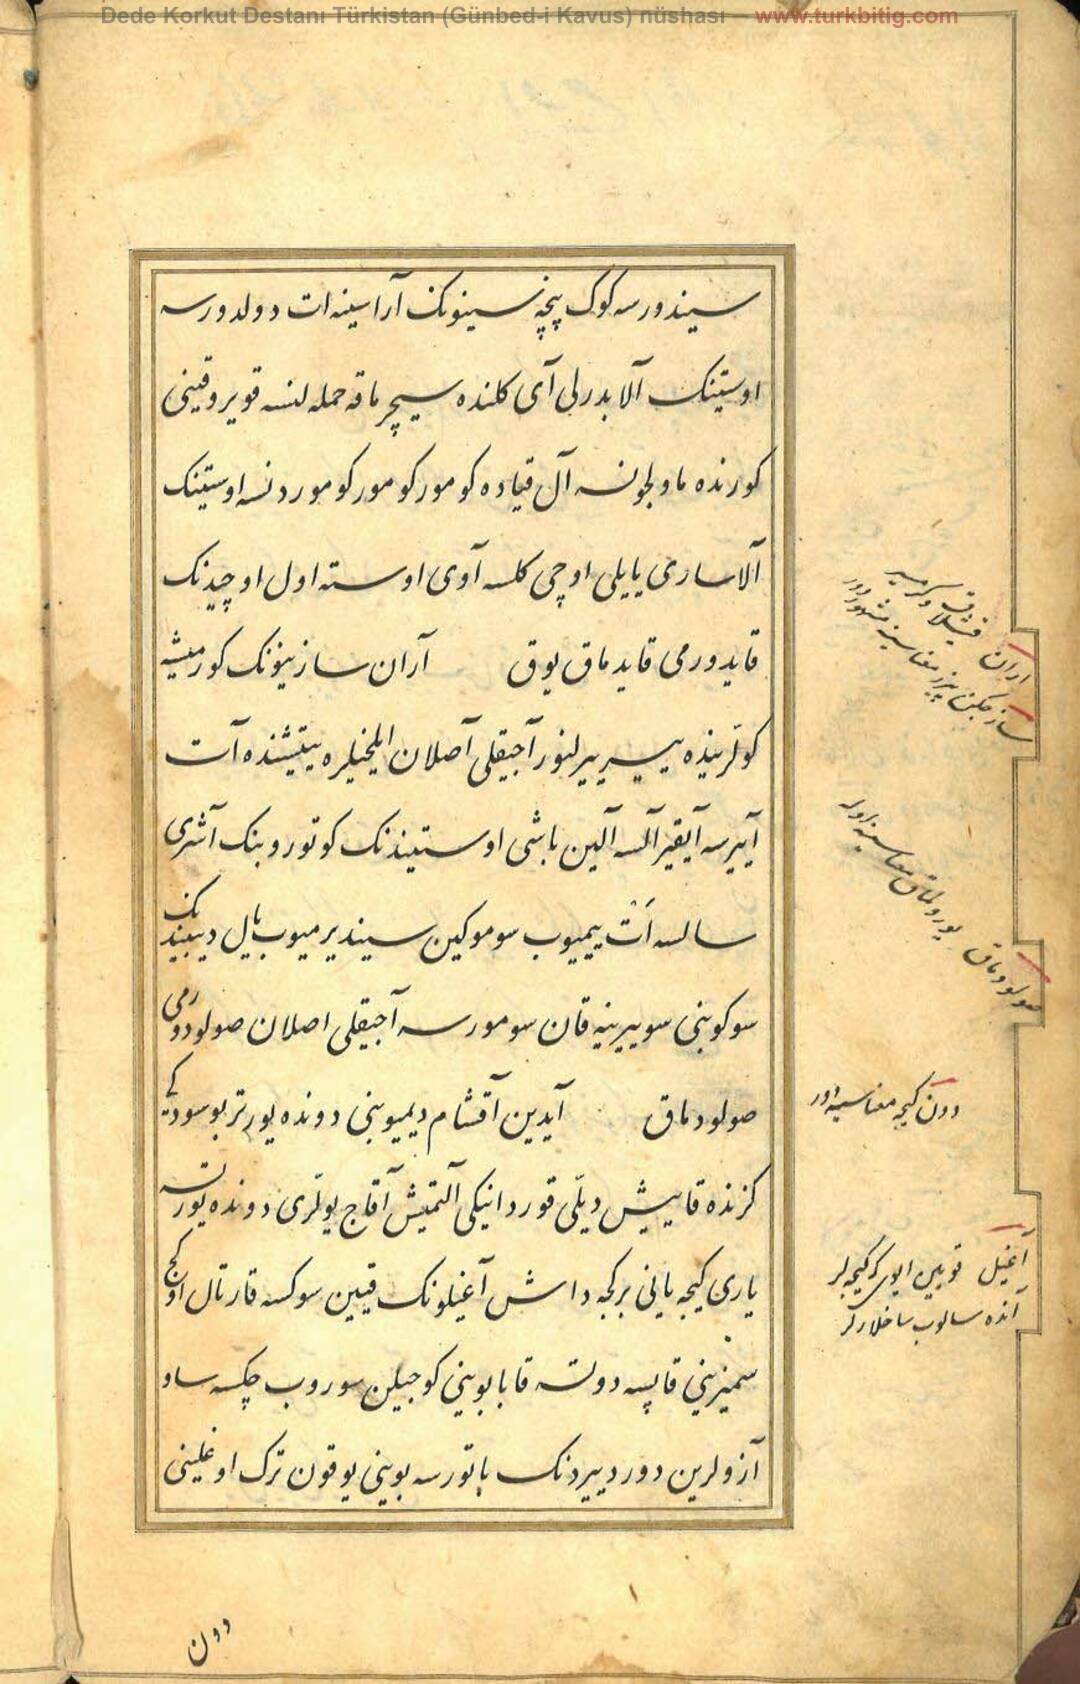 Dede Korkut Destanı Türkistan (Günbed-i Kavus) nüshası – www.turkbitig.com
سیندورسه کوک پنچه سینونک آراسینه ات دولدورسه
اوستینک آلا بدرلی آی کلنده سیچرماقه حمله لنسه قویروقینی
کورنده ماولجونسه آل قیاده کومور کومور کوموردنسه اوستینک
آلا ساری یایلی اوچی کلسه آوی اوسته اول اوچیدنک
قایدورمی قایدماق یوق آران سازینونک کورمیشه
کولرینده بیر لنور آجیقلی آصلان ایلخیلره ییتیشنده آت
آییرسه آیقیر آلسه آلین باشی اوستیندنک کوتوروبنک آشری
سالسه اَتْ ییمیوب سوموکین سیندیرمیوب بایل دیبیندنک
سوکوبنی سوییرینه قان سومورسه آجیقلی اصلان صولودورمی
صولودماق آیدین آقشام دیمیوبنی دونده یورتر بوسودکی
کزنده قاییش دیلّی قورد اینکی آلتمیش آقاج یوللری دونده یورتسه
یاری کیجه یانی برکجه داش آغیلونک قیین سوکسه قارتال اوکج
سمیزینی قاپسه دولته قابا بوینی کوجیلن سوروب چکسه ساو
آزولرین دورد ییردنک باتورسه بوینی یوقون ترک اوغلینی
اران قیشلاق و کرمسیر
ساز جکن ییز معناسینه مشهوردور
صولودماق یورولماق معناسینه اولر
دون کیجه معناسینه دور
آغیل قویین ایوی که کیجه لر
آنده سالوب ساخلارلر
دون